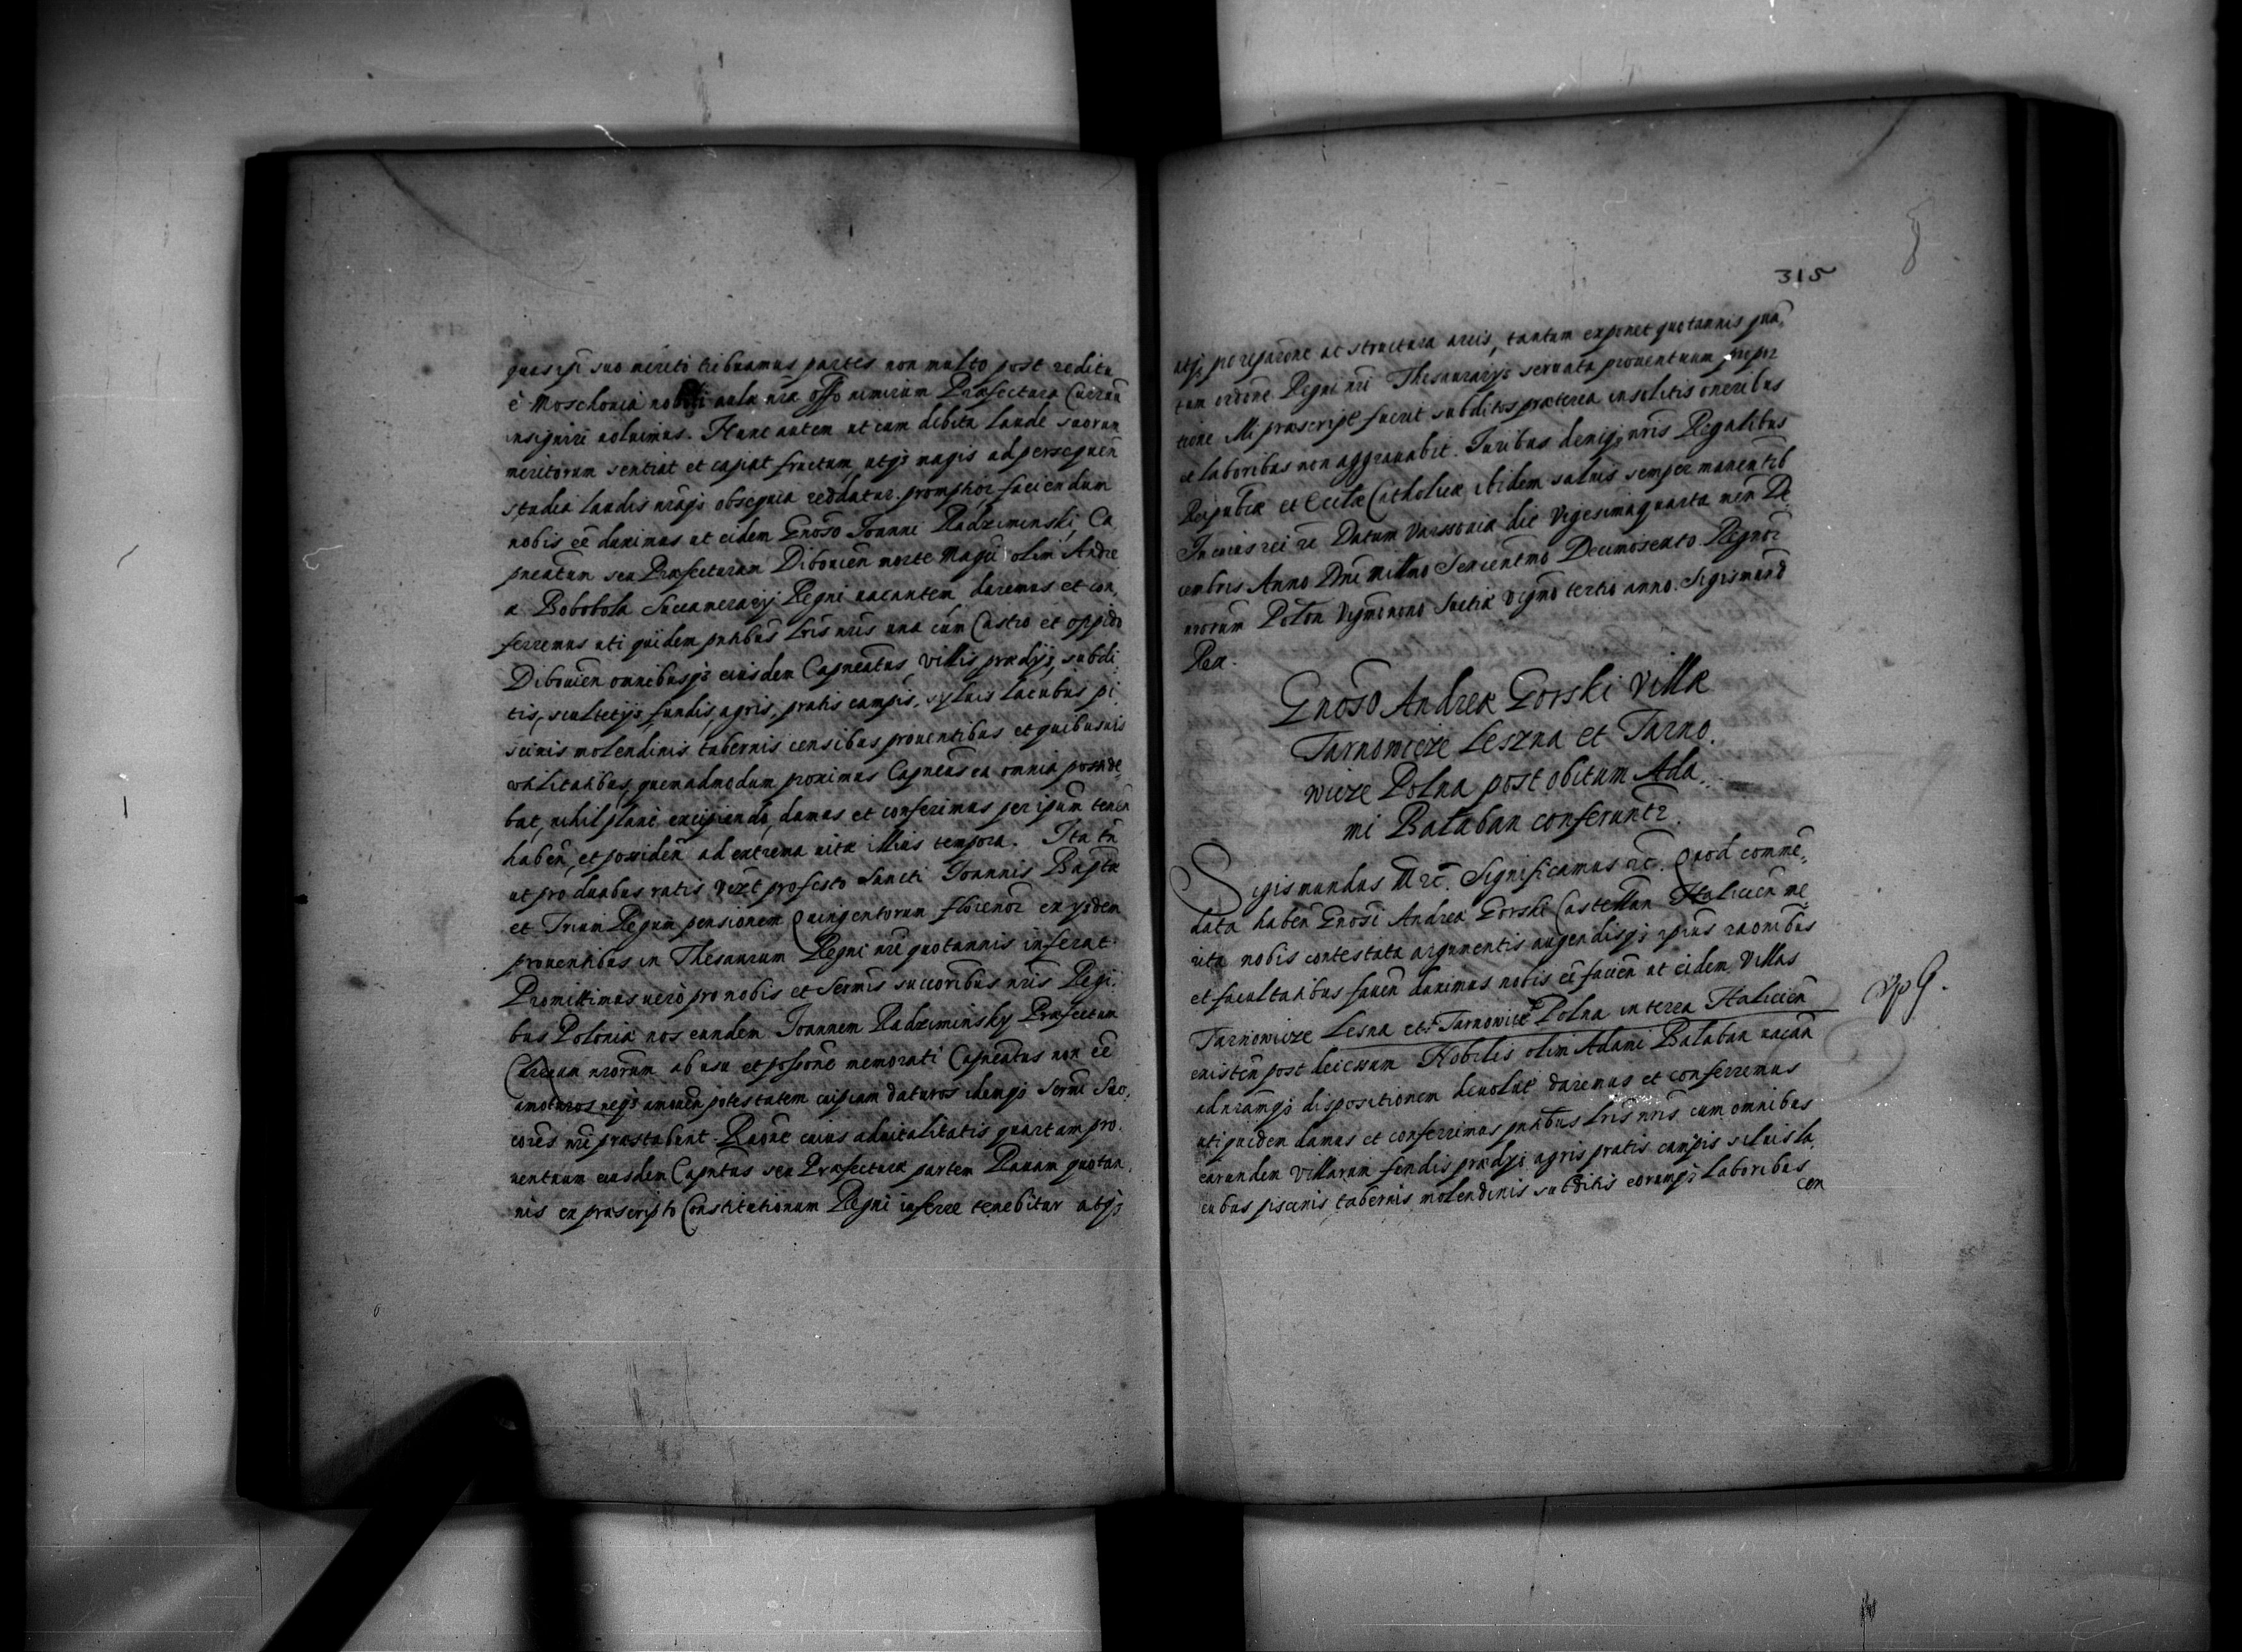 quas ipi suo merito tribuamus partes non multo post reditu
è Moschouia nobili aula nra offo nimirum Præfectura Curruu
insigniri uoluimus. Hunc autem ut eum debita laude suorum
meritorum sentiat et capiat fructum, utqȝ magis ad persequen
studia laudis nraqȝ obsequia reddatur promptior faciendum
nobis eē duximus ut eidem Gnoso Joanni Radziminski, Ca
pneatum seu Præfecturam Dibouien morte Magci olim Andre
a Bobobola Succamerarij Regni uacantem daremus et con,
ferremus uti quidem pntibus lris nris una cum Castro et oppido
Dibouien omnibusqȝ eiusdem Capneatus, villis prædijs, subdi
tis, scultetijs, fundis, agris, pratis campis, syluis lacubus pi
scinis molendinis tabernis censibus prouentibus et quibusuis
utilitatibus, quemadmodum proximus Capneus ea omnia posside,
bat, nihil plane excipiendo, damus et conferimus per ipsum tenen
haben, et possiden ad extrema uitæ illius tempora. Ita tn
ut pro duabus ratis vizt pro festo Sancti Joannis Baptæ
et Trium Regum pensionem Quingentorum florenor ex ijsdem
prouentibus in Thesaurum Regni nri quotannis inferat
Promittimus uero pro nobis et Sermis succoribus nris Regi,
bus Poloniæ nos eundem Joannem Radziminsky Præfectum
Curruum nrorum ab usu et possone memorati Capneatus non eē
amoturos neqȝ amouen potestatem cuipiam daturos idemqȝ Sermi Suc,
cores nri præstabunt. Raone cuius aduitalitatis quartam pro,
uentuum eiusdem Capntus seu Præfecturæ partem Rauam quotan,
nis ex præscripto Constitutionum Regni inferre tenebitur atqȝ
315
atqȝ pro reparone ac structura arcis, tantum exponet quotannis quan,
tum ordine Regni nri Thesaurarijs seruata prouentuum propor
tione illi præscript fuerit subditos præterea insolitis oneribus
et laboribus non aggrauabit. Juribus deniqȝ nris Regalibus
Reipubcæ et Ecclæ Catholicæ ibidem saluis semper manentib
In cuius rei rc Datum Varssouiæ die Vigesimaquarta men De
cembris Anno Dni Millmo Sexcentmo Decimosexto. Regnor
nrorum Polon Vigmonono Suetiæ vigmo tertio anno. Sigismund
Rex.
Gnoso Andreæ Gorski Villæ
Tarnowicze Leszna et Tarno.
wicze Polna post obitum Ada,
mi Bałaban conferuntr.
Sigismundus III rc. Significamus rc. Quod comme,
data haben Gnosi Andreæ Gorski Castellan Halicien me,
rita nobis contestata argumentis augendisqȝ ipius raonibus
et facultatibus fauen duximus nobis eē facien ut eidem Villas
Tarnowicze Lesna et Tarnowicze Polna in terra Halicien
existen post decessum Nobilis olim Adami Bałaban uacan
ad nramqȝ dispositionem deuolut daremus et conferremus
uti quidem damus et conferrimus pntibus lris nris cum omnibus
earundem villarum fundis prædijs agris pratis campis siluis la,
cubus piscinis tabernis molendinis subditis eorumqȝ laboribus
cen